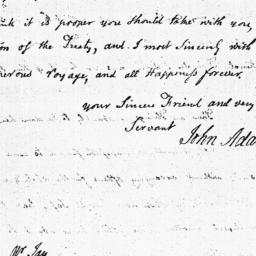 it is proper you should take with you,
of the Treaty, and I most Sincerely wish
Voyage, and all Happiness forever.
your Sincere Friend and very
Servant
John Ada
Mr Jay